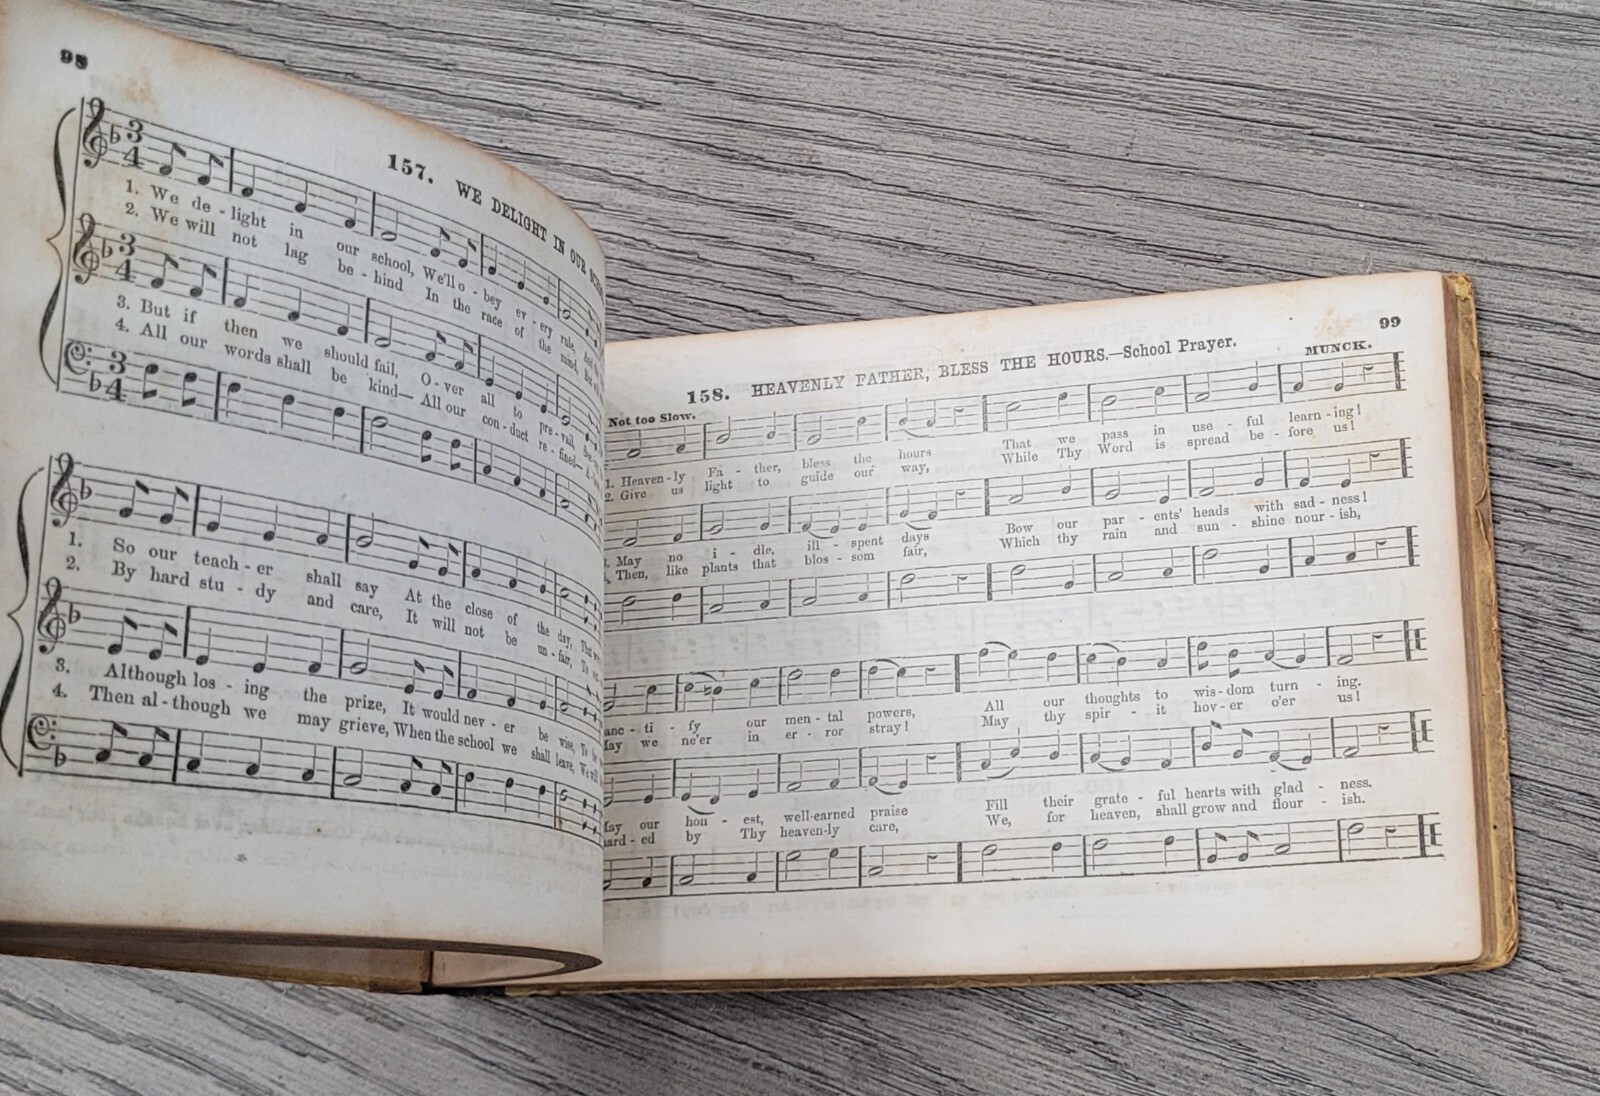 98
157. WE DELIGHT IN OUR
3
4
1. We de - light in our school, We'll o - bey ev - ery rule,
2. We will not lag be - hind In the race of the mind,
3
4
3. But if then we should fail, O - ver all to pre - vail
4. All our words shall be kind— All our con - duct re - fined—
3
4
1. So our teach - er shall say At the close of the day,
2. By hard stu - dy and care, It will not be un - fair,
3. Although los - ing the prize, It would nev - er be wise,
4. Then al - though we may grieve, When the school we shall leave,
99
158. HEAVENLY FATHER, BLESS THE HOURS.—School Prayer.
MUNCK.
Not too Slow.
1. Heaven - ly Fa - ther, bless the hours That we pass in use - ful learn - ing!
2. Give us light to guide our way, While Thy Word is spread be - fore us!
May no i - dle, ill - spent days Bow our par - ents' heads with sad - ness!
Then, like plants that blos - som fair, Which thy rain and sun - shine nour - ish,
ti - fy our men - tal powers, All our thoughts to wis - dom turn - ing.
we ne'er in er - ror stray! May thy spir - it hov - er o'er us!
our hon - est, well-earned praise Fill their grate - ful hearts with glad - ness.
ed by Thy heaven-ly care, We, for heaven, shall grow and flour - ish.